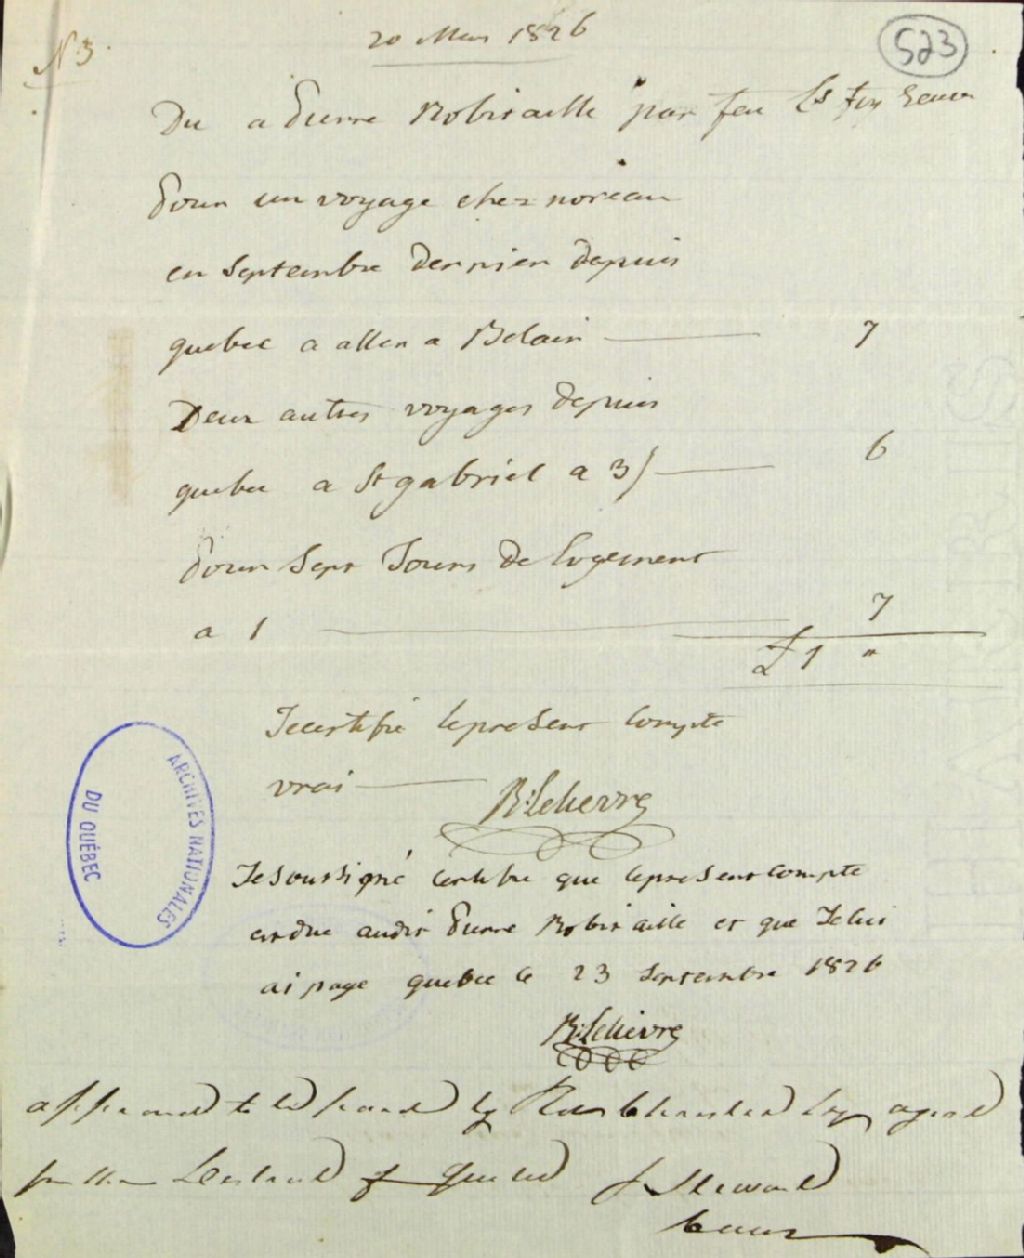 N 3
20 Mars 1826
523
Du a Pierre Robitaille par feu Ls
Pour un voyage chez noreau
en Septembre dernier depuis
quebec a aller a Belair 7
Deux autres voyages depuis
quebec a St gabriel a 3/ 6
Pour Sept Jours De logement
a 1 7
£ 1 "
Je certifie le present Compte
vrai
R: Lelievre
ARCHIVES NATIONALES
DU QUÉBEC
Je soussigné Certifie que le present compte
est due audit Pierre Robitaille et que Je lui
ai paye quebec le 23 Septembre 1826
R: Lelievre
approved to be paid by agent
for the of
J Steward